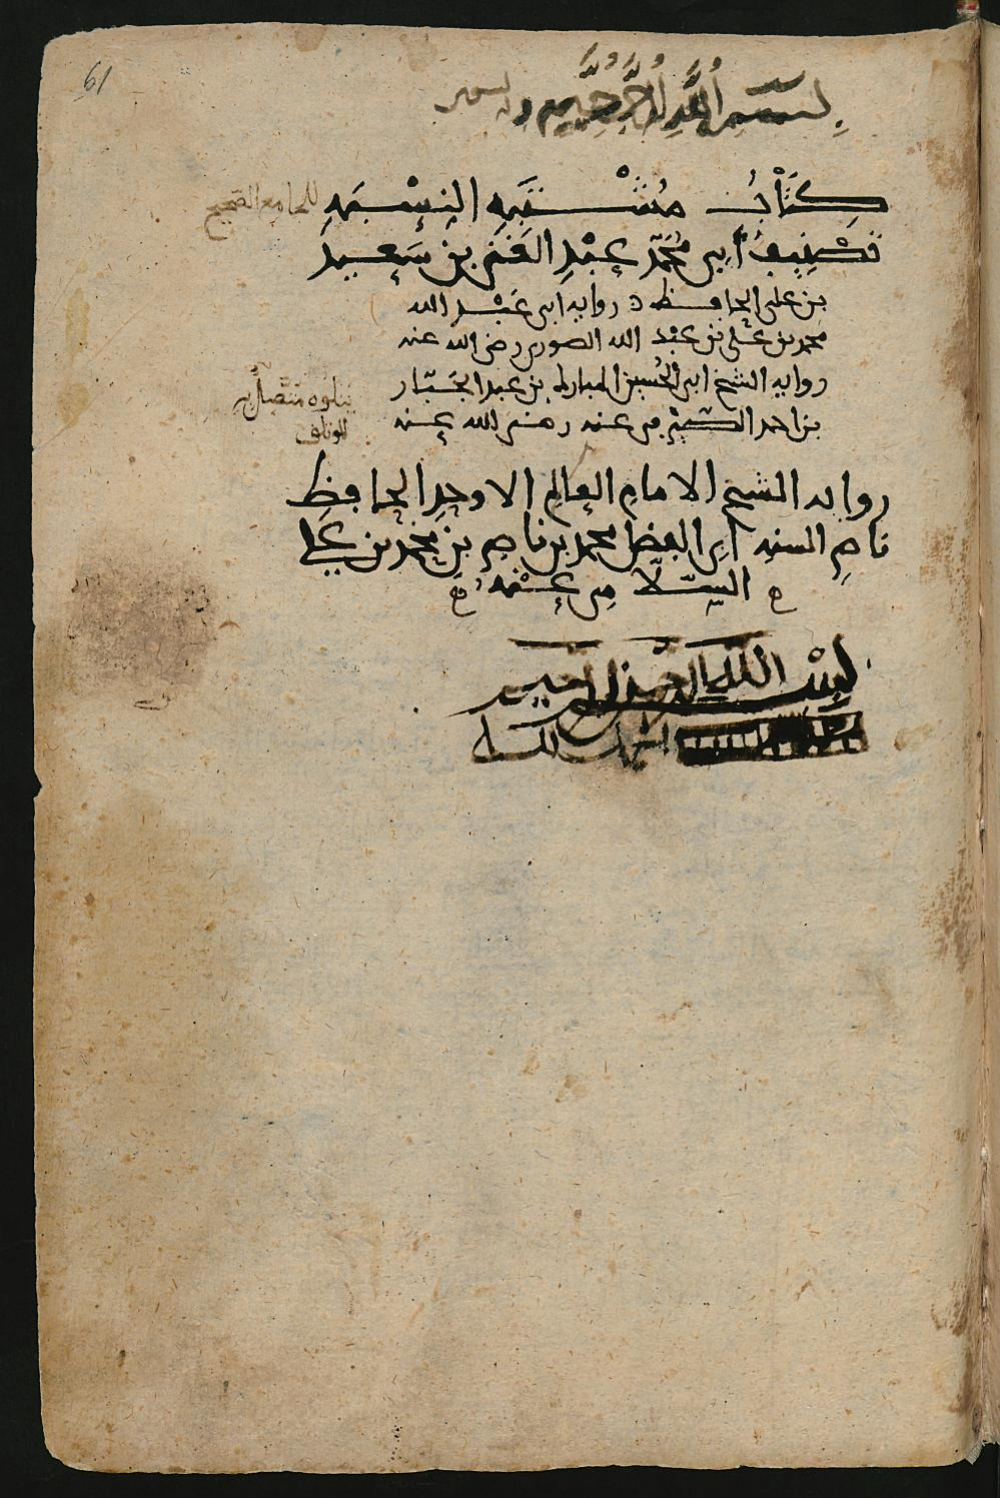 61
بسم الله الرحمن الرحيم
كتاب مشتبه النسبة
تصنيف ابي محمد عبد الغني بن سعيد
بن علي الحافظ رواية ابي عبد الله
محمد بن علي بن عبد الله الصوري رضي الله عنه
رواية الشيخ ابي الحسين المبارك بن عبد الجبار
بن احمد الصيرفي عنه رضي الله عنه
رواية الشيخ الامام العالم الاوحد الحافظ
ناصر السنة ابي الفضل محمد بن ناصر بن محمد بن علي
السلامي عنه
بسم الله الرحمن الرحيم